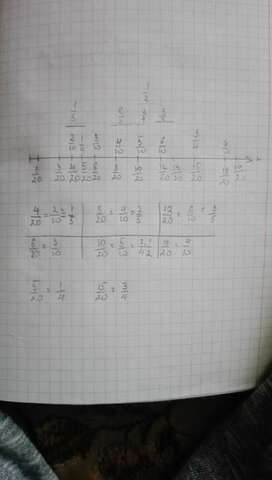 1/5 2/5 1/2 3/5
2/10 1/4 3/10 4/10 5/10 6/10 3/4 9/10
3/20 4/20 5/20 6/20 8/20 10/20 12/20 13/20 15/20 18/20
4/20 = 2/10 = 1/5 8/20 = 4/10 = 2/5 12/20 = 6/10 = 3/5
6/20 = 3/10 10/20 = 5/10 = 18/20 = 9/10
5/20 = 1/4 15/20 = 3/4